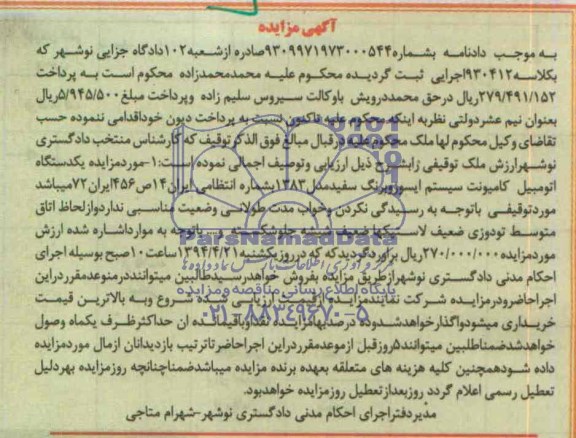 آگهی مزایده
به موجب دادنامه بشماره۹۳۰۹۹۷۱۹۷۳۰۰۰۵۴۴صادره ازشعبه۱۰۲دادگاه جزایی نوشهر که
بکلاسه۹۳۰۴۱۲اجرایی ثبت گردیده محکوم علیه محمدمحمدزاده محکوم است به پرداخت
۲۷۹/۴۹۱/۱۵۲ریال درحق محمددرویش باوکالت سیروس سلیم زاده وپرداخت مبلغ۵/۹۴۵/۵۰۰ریال
بعنوان نیم عشردولتی نظربه اینکه محکوم علیه تاکنون نسبت به پرداخت دیون خوداقدامی ننموده حسب
تقاضای وکیل محکوم لها ملک محکوم علیه درقبال مبالغ فوق الذکر توقیف که کارشناس منتخب دادگستری
نوشهرارزش ملک توقیفی رابشرح ذیل ارزیابی وتوصیف اجمالی نموده است:۱-موردمزایده یکدستگاه
اتومبیل کامیونت سیستم ایسوزوبرنگ سفیدمدل۱۳۸۳بشماره انتظامی ایران۱۴ص۴۵۶ایران۷۲میباشد
موردتوقیفی باتوجه به رسیدگی نکردن وخواب مدت طولانی وضعیت مناسبی نداردوازلحاظ اتاق
متوسط تودوزی ضعیف لاستیکها ضعیف شیشه جلوشکسته و باتوجه به موارداشاره شده ارزش
موردمزایده۲۷۰/۰۰۰/۰۰۰ریال برآوردگردیدکه که درروزیکشنبه۱۳۹۴/۴/۲۱ساعت۱۰صبح بوسیله اجرای
احکام مدنی دادگستری نوشهرازطریق مزایده بفروش خواهدرسیدطالبین میتواننددرموعدمقرردراین
اجراحاضرودرمزایده شرکت نمایندمزایده ازقیمت ارزیابی شده شروع وبه بالاترین قیمت
خریداری میشودواگذارخواهدشدوده درصدبهامزایده نقداوباقیمانده ان حداکثرظرف یکماه وصول
خواهدشدضمناطلبین میتوانند۵روزقبل ازموعدمقرردراین اجراحاضرتاترتیب بازدیدانان ازمال موردمزایده
داده شودهمچنین کلیه هزینه های متعلقه بعهده برنده مزایده میباشدضمناچنانچه روزمزایده بهردلیل
تعطیل رسمی اعلام گردد روزبعدازتعطیل روزمزایده خواهدبود.
مدیردفتراجرای احکام مدنی دادگستری نوشهر-شهرام متاجی
ParsNamadData
پایگاه اطلاع رسانی مناقصه ومزایده
۰۲۱-۸۸۳۴۹۶۷۰-۵